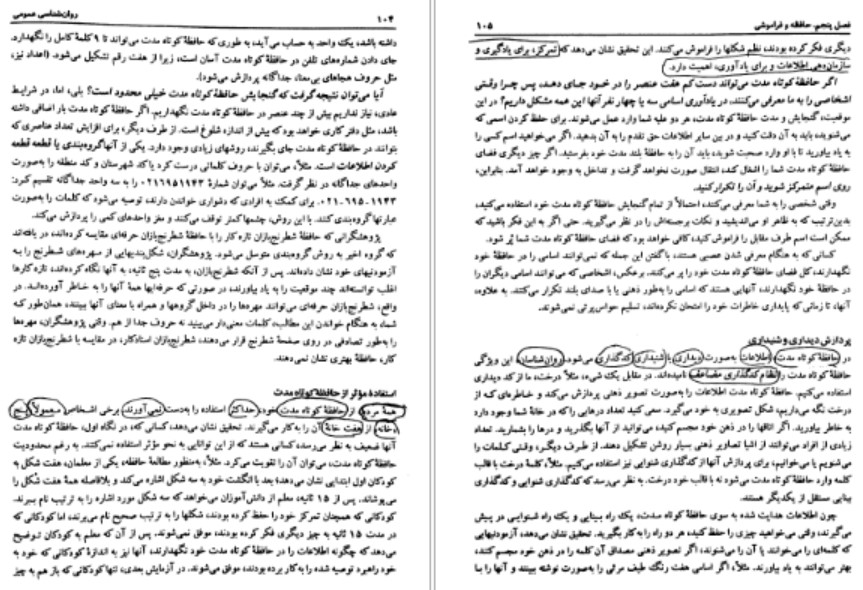 ۱۰۴ روان‌شناسی عمومی
داشته باشد، یک واحد به حساب می‌آید، به طوری که حافظهٔ کوتاه مدت می‌تواند تا ۹ کلمهٔ کامل را نگهدارد.
جای دادن شماره‌های تلفن در حافظهٔ کوتاه مدت آسان است، زیرا از هفت رقم تشکیل می‌شود. (اعداد نیز،
مثل حروف هجاهای بی‌معنا، جداگانه پردازش می‌شود).
آیا می‌توان نتیجه گرفت که گنجایش حافظهٔ کوتاه مدت خیلی محدود است؟ بلی، اما، در شرایط
عادی، نیاز نداریم بیش از چند عنصر در حافظهٔ کوتاه مدت نگهداریم. اگر حافظهٔ کوتاه مدت بار اضافی داشته
باشد، مثل دفتر کاری خواهد بود که بیش از اندازه شلوغ است. از طرف دیگر، برای افزایش تعداد عناصری که
بتوانند در حافظهٔ کوتاه مدت جای بگیرند، روشهای زیادی وجود دارد. یکی از آنها گروه‌بندی یا قطعه قطعه
کردن اطلاعات است. مثلاً، می‌توان با حروف کلماتی درست کرد یا کد شهرستان و کد منطقه را به‌صورت
واحدهای جداگانه در نظر گرفت. مثلاً می‌توان شمارهٔ ۰۲۱۶۹۵۱۱۴۳ را به سه واحد جداگانه تقسیم کرد:
۱۱۴۳-۶۹۵-۰۲۱. برای کمک به افرادی که دشواری خواندن دارند، توصیه می‌شود که کلمات را به‌صورت
عبارتها گروه‌بندی کنند. با این روش، چشمها کمتر توقف می‌کنند و مغز واحدهای کمی را پردازش می‌کند.
پژوهشگرانی که حافظهٔ شطرنج‌بازان تازه کار را با حافظهٔ شطرنج‌بازان حرفه‌ای مقایسه کرده‌اند، دریافته‌اند
که گروه اخیر به روش گروه‌بندی متوسل می‌شود. پژوهشگران، شکل‌بندیهایی از مهره‌های شطرنج را به
آزمودنیهای خود نشان داده‌اند. پس از آنکه شطرنج‌بازان، به مدت پنج ثانیه، به آنها نگاه کرده‌اند، تازه‌کارها
اغلب توانسته‌اند چند موقعیت را به یاد بیاورند، در صورتی که حرفه‌ایها همهٔ آنها را به خاطر آورده‌اند. در
واقع، شطرنج‌بازان حرفه‌ای می‌توانند مهره‌ها را در داخل گروهها و همراه با معنای آنها ببینند، همان‌طور که
شما، به هنگام خواندن این مطالب، کلمات معنی‌دار می‌بینید نه حروف جدا از هم. وقتی پژوهشگران، مهره‌ها
را به‌طور تصادفی در روی صفحهٔ شطرنج قرار می‌دهند، شطرنج‌بازان استادکار، در مقایسه با شطرنج‌بازان تازه
کار، حافظهٔ بهتری نشان نمی‌دهند.
استفادهٔ مؤثر از حافظهٔ کوتاه مدت
همهٔ مردم از حافظهٔ کوتاه مدت خود، حداکثر استفاده را به‌دست نمی‌آورند. برخی اشخاص معمولاً پنج
خانه از هفت خانهٔ آن را به کار می‌گیرند. تحقیق نشان می‌دهد، کسانی که، در نگاه اول، حافظهٔ کوتاه مدت
آنها ضعیف به نظر می‌رسد، کسانی هستند که از این توانایی به نحو مؤثر استفاده نمی‌کنند. به رغم محدودیت
حافظهٔ کوتاه مدت، می‌توان آن را تقویت می‌کرد. مثلاً، به‌منظور مطالعهٔ حافظه، یکی از معلمان، هفت شکل به
کودکان اول ابتدایی نشان می‌دهد؛ بعد با انگشت خود به سه شکل اشاره می‌کند و بلافاصله همهٔ هفت شکل را
می‌پوشاند. پس از ۱۵ ثانیه، معلم از دانش‌آموزان می‌خواهد که سه شکل مورد اشاره را به ترتیب نام ببرند.
کودکانی که همچنان تمرکز خود را حفظ کرده بودند، شکلها را به ترتیب صحیح نام می‌برند، اما کودکانی که
در مدت ۱۵ ثانیه به چیز دیگری فکر کرده بودند، موفق نمی‌شوند. پس از آن که معلم به کودکان توضیح
می‌دهد که چگونه اطلاعات را در حافظهٔ کوتاه مدت خود نگهدارند، آنها نیز به اندازهٔ کودکانی که خود به
خود راهبرد توصیه شده را به کار برده بودند، موفق می‌شوند. در آزمایش بعدی، تنها کودکانی که باز هم به چیز
فصل پنجم. حافظه و فراموشی ۱۰۵
دیگری فکر کرده بودند، نظم شکلها را فراموش می‌کنند. این تحقیق نشان می‌دهد که تمرکز، برای یادگیری و
سازمان‌دهی اطلاعات و برای یادآوری، اهمیت دارد.
اگر حافظهٔ کوتاه مدت می‌تواند دست کم هفت عنصر را در خود جای دهد، پس چرا وقتی
اشخاصی را به ما معرفی می‌کنند، در یادآوری اسامی سه یا چهار نفر آنها این همه مشکل داریم؟ در این
موقعیت، گنجایش و مدت حافظهٔ کوتاه مدت، هر دو علیه شما وارد عمل می‌شوند. برای حفظ کردن اسمی که
می‌شنوید، باید به آن دقت کنید و در بین سایر اطلاعات حق تقدم را به آن بدهید. اگر می‌خواهید اسم کسی را
به یاد بیاورید تا با او وارد صحبت شوید، باید آن را به حافظهٔ بلند مدت خود بفرستید. اگر چیز دیگری فضای
حافظهٔ کوتاه مدت شما را اشغال کند، انتقال صورت نخواهد گرفت و تداخل به وجود خواهد آمد. بنابراین،
روی اسم متمرکز شوید و آن را تکرار کنید.
وقتی شخصی را به شما معرفی می‌کنند، احتمالاً از تمام گنجایش حافظهٔ کوتاه مدت خود استفاده می‌کنید،
بدین‌ترتیب که به ظاهر او می‌اندیشید و نکات برجسته‌اش را در نظر می‌گیرید. حتی اگر به این فکر باشید که
ممکن است اسم طرف مقابل را فراموش کنید، کافی خواهد بود که فضای حافظهٔ کوتاه مدت شما پُر شود.
کسانی که به هنگام معرفی شدن عصبی هستند، با گفتن این جمله که نمی‌توانند اسامی را در حافظهٔ خود
نگهدارند، کل فضای حافظهٔ کوتاه مدت خود را پر می‌کنند. برعکس، اشخاصی که می‌توانند اسامی دیگران را
در حافظهٔ خود نگهدارند، آنهایی هستند که اسامی را به‌طور ذهنی یا با صدای بلند تکرار می‌کنند. به علاوه،
آنها، تا زمانی که پایداری خاطرات خود را امتحان نکرده‌اند، تسلیم حواس‌پرتی نمی‌شوند.
پردازش دیداری و شنیداری
در حافظهٔ کوتاه مدت، اطلاعات به‌صورت دیداری یا شنیداری کدگذاری می‌شود. روان‌شناسان، این ویژگی
حافظهٔ کوتاه مدت را نظام کدگذاری مضاعف نامیده‌اند. در مقابل یک شیء، مثلاً درخت، ما از کد دیداری
استفاده می‌کنیم. حافظهٔ کوتاه مدت اطلاعات را به‌صورت تصویر ذهنی پردازش می‌کند و خاطره‌ای که از
درخت نگه می‌داریم، شکل تصویری به خود می‌گیرد. سعی کنید تعداد درهایی را که در خانهٔ شما وجود دارد
به خاطر بیاورید. اگر اتاقها را در ذهن خود مجسم کنید، می‌توانید از آنها بگذرید و درها را بشمارید. تعداد
زیادی از افراد می‌توانند از اشیا تصاویر ذهنی بسیار روشن تشکیل دهند. از طرف دیگر، وقتی کلمات را
می‌شنویم یا می‌خوانیم، برای پردازش آنها از کدگذاری شنوایی نیز استفاده می‌کنیم. مثلاً، کلمهٔ درخت با قالب
کلمه وارد حافظهٔ کوتاه مدت می‌شود نه با قالب خود درخت. به نظر می‌رسد که کدگذاری شنوایی و کدگذاری
بینایی مستقل از یکدیگر هستند.
چون اطلاعات هدایت شده به سوی حافظهٔ کوتاه مدت، یک راه بینایی و یک راه شنوایی در پیش
می‌گیرند، وقتی می‌خواهید چیزی را حفظ کنید، هر دو راه را به کار بگیرید. تحقیق نشان می‌دهد، آزمودنیهایی
که کلمه‌ای را می‌خوانند یا آن را می‌شنوند، اگر تصویر ذهنی مصداق آن کلمه را در ذهن خود مجسم کنند،
بهتر می‌توانند به یاد بیاورند. مثلاً، اگر اسامی هفت رنگ طیف مرئی را به‌صورت نوشته ببینند و آنها را با